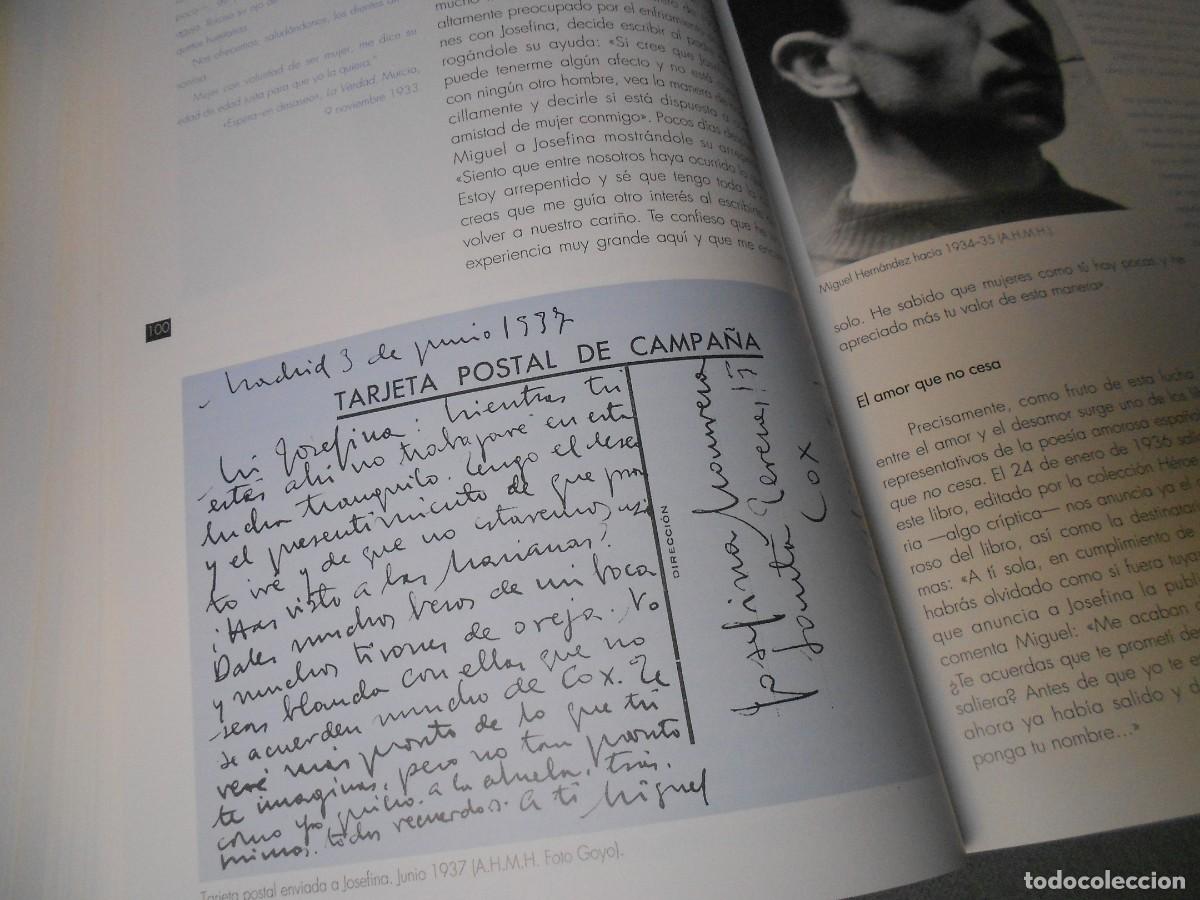 poco—, de
Nos ofrecemos, saludándonos, los dientes
Mujer con voluntad de ser mujer, me dice su
edad de edad justa para que yo la quiera."
«Espera-en desaseo», La Verdad. Murcia,
9 noviembre 1933.
mucho
altamente preocupado por el enfriamiento
nes con Josefina, decide escribir al padre
rogándole su ayuda: «Si cree que
puede tenerme algún afecto y no está
con ningún otro hombre, vea la manera de
cillamente y decirle si está dispuesta a
amistad de mujer conmigo». Pocos días
Miguel a Josefina mostrándole su
«Siento que entre nosotros haya ocurrido
Estoy arrepentido y sé que tengo toda la
creas que me guía otro interés al escribirte
volver a nuestro cariño. Te confieso que he
experiencia muy grande aquí y que me
100
Madrid 3 de junio 1937
TARJETA POSTAL DE CAMPAÑA
Mi Josefina: Mientras tú
estás ahí no trabajaré en esta
lucha tranquilo. Tengo el deseo
y el presentimiento de que pron
to iré y de que no estaremos así
¿Has visto a las Marianas?
Dales muchos besos de mi boca
y muchos tirones de oreja. No
seas blanda con ellas que no
se acuerden mucho de Cox. Te
veré más pronto de lo que tú
te imaginas, pero no tan pronto
como yo quiero. A la abuela, tías,
mimos. todos recuerdos. A ti Miguel
DIRECCIÓN
Josefina Manresa
Cox
Tarjeta postal enviada a Josefina. Junio 1937 (A.H.M.H. Foto Goyo).
Miguel Hernández hacia 1934-35 (A.H.M.H.).
solo. He sabido que mujeres como tú hay pocas y he
apreciado más tu valor de esta manera».
El amor que no cesa
Precisamente, como fruto de esta lucha
entre el amor y el desamor surge uno de los
representativos de la poesía amorosa española
que no cesa. El 24 de enero de 1936
este libro, editado por la colección Héroe
ria —algo críptica— nos anuncia ya el
roso del libro, así como la destinataria
mas: «A ti sola, en cumplimiento de
habrás olvidado como si fuera tuya
que anuncia a Josefina la
comenta Miguel: «Me acaban
¿Te acuerdas que te prometí
saliera? Antes de que yo te
ahora ya había salido y
ponga tu nombre...»
todocoleccion